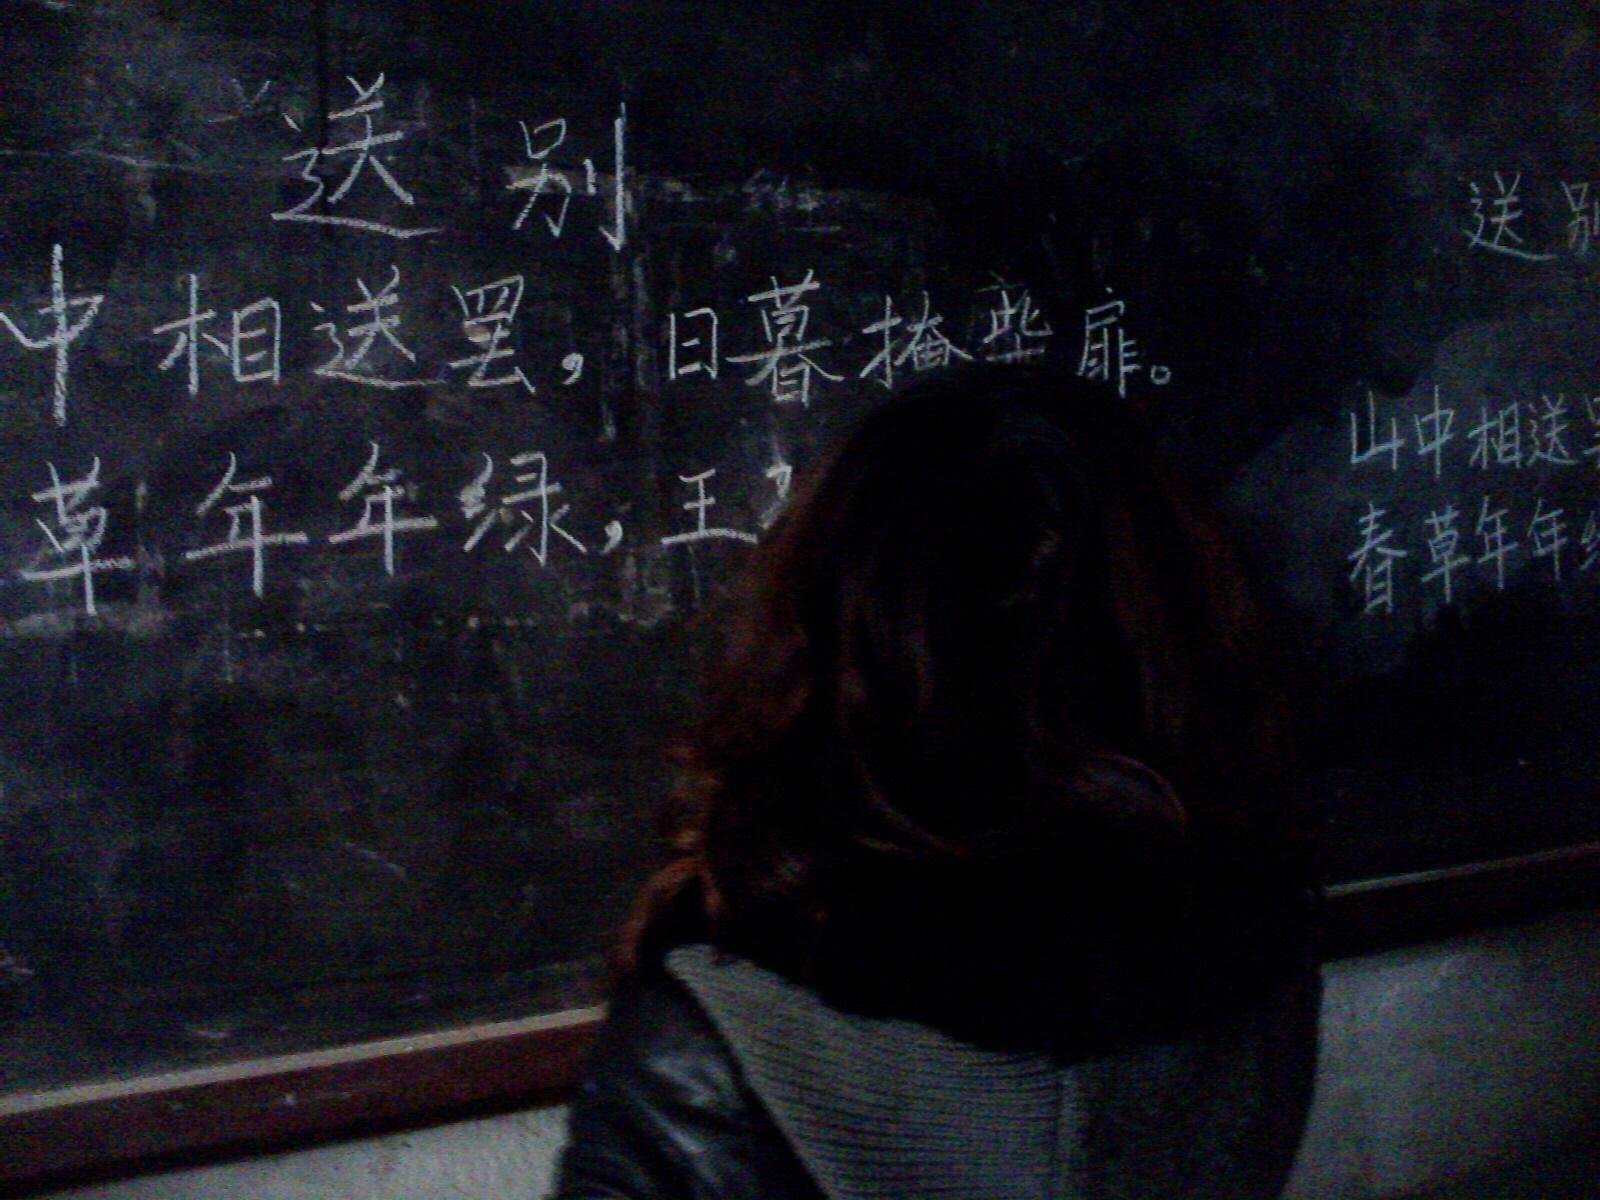 送别
中相送罢，日暮掩柴扉。
草年年绿，王
送别
山中相送
春草年年